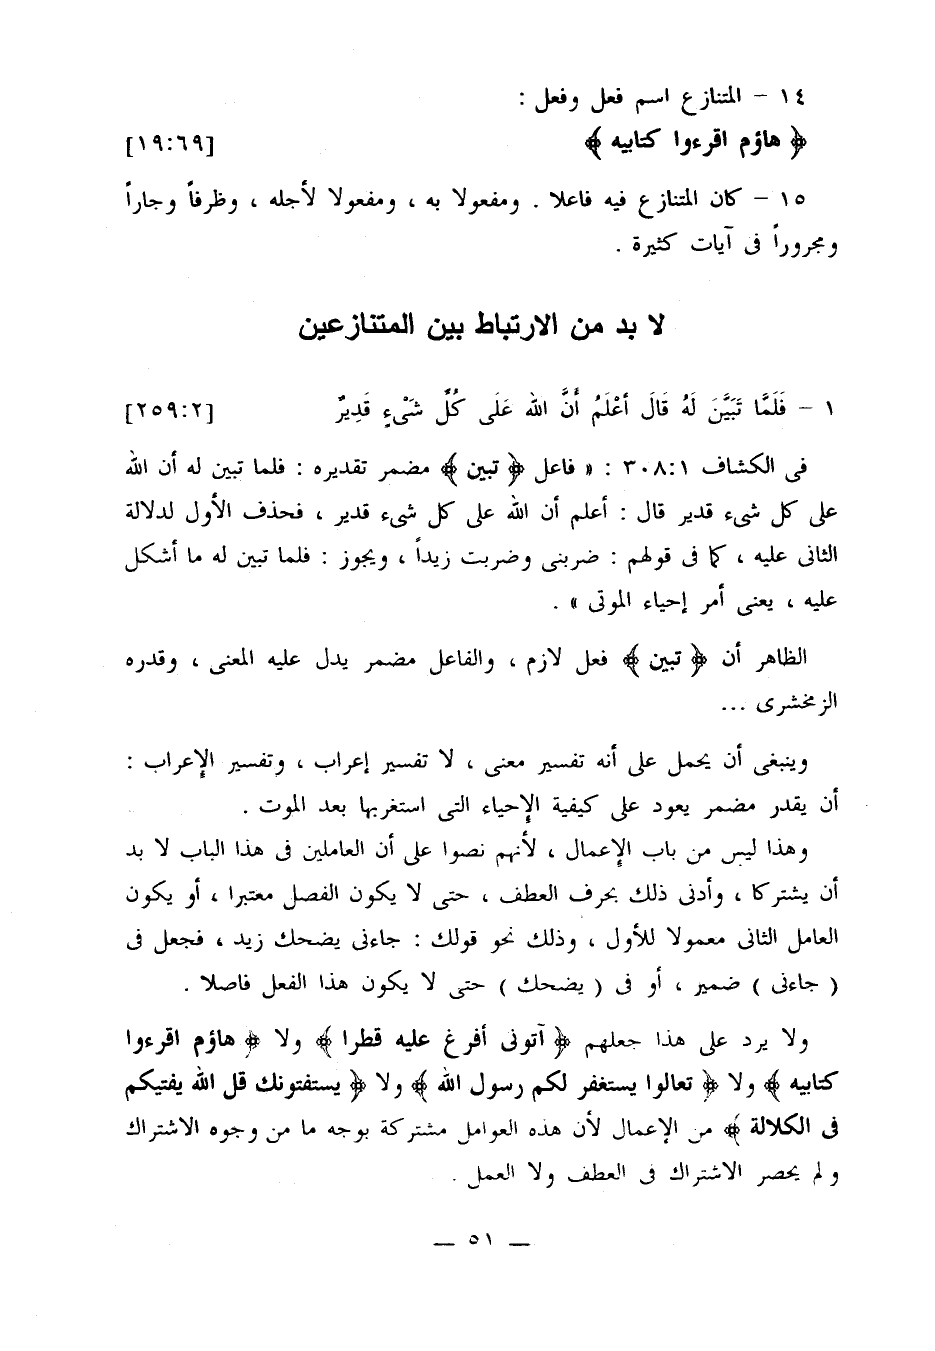 ١٤ – المتنازع اسم فعل وفعل :
﴿ هاؤم اقرءوا كتابيه ﴾ [١٩:٦٩]
١٥ – كان المتنازع فيه فاعلا . ومفعولا به ، ومفعولا لأجله ، وظرفاً وجاراً
ومجروراً فى آيات كثيرة .
لا بد من الارتباط بين المتنازعين
١ – فَلَمَّا تَبَيَّنَ لَهُ قَالَ أَعْلَمُ أَنَّ الله عَلَى كُلِّ شَىْءٍ قَدِيرٌ [٢٥٩:٢]
فى الكشاف ٣٠٨:١ : « فاعل ﴿ تبين ﴾ مضمر تقديره : فلما تبين له أن الله
على كل شىء قدير قال : أعلم أن الله على كل شىء قدير ، فحذف الأول لدلالة
الثانى عليه ، كما فى قولهم : ضربنى وضربت زيداً ، ويجوز : فلما تبين له ما أشكل
عليه ، يعنى أمر إحياء الموتى » .
الظاهر أن ﴿ تبين ﴾ فعل لازم ، والفاعل مضمر يدل عليه المعنى ، وقدره
الزمخشرى ...
وينبغى أن يحمل على أنه تفسير معنى ، لا تفسير إعراب ، وتفسير الإعراب :
أن يقدر مضمر يعود على كيفية الإحياء التى استغربها بعد الموت .
وهذا ليس من باب الإعمال ، لأنهم نصوا على أن العاملين فى هذا الباب لا بد
أن يشتركا ، وأدنى ذلك بحرف العطف ، حتى لا يكون الفصل معتبرا ، أو يكون
العامل الثانى معمولا للأول ، وذلك نحو قولك : جاءنى يضحك زيد ، فجعل فى
( جاءنى ) ضمير ، أو فى ( يضحك ) حتى لا يكون هذا الفعل فاصلا .
ولا يرد على هذا جعلهم ﴿ آتونى أفرغ عليه قطرا ﴾ ولا ﴿ هاؤم اقرءوا
كتابيه ﴾ ولا ﴿ تعالوا يستغفر لكم رسول الله ﴾ ولا ﴿ يستفتونك قل الله يفتيكم
فى الكلالة ﴾ من الإعمال لأن هذه العوامل مشتركة بوجه ما من وجوه الاشتراك
ولم يحصر الاشتراك فى العطف ولا العمل .
— ٥١ —